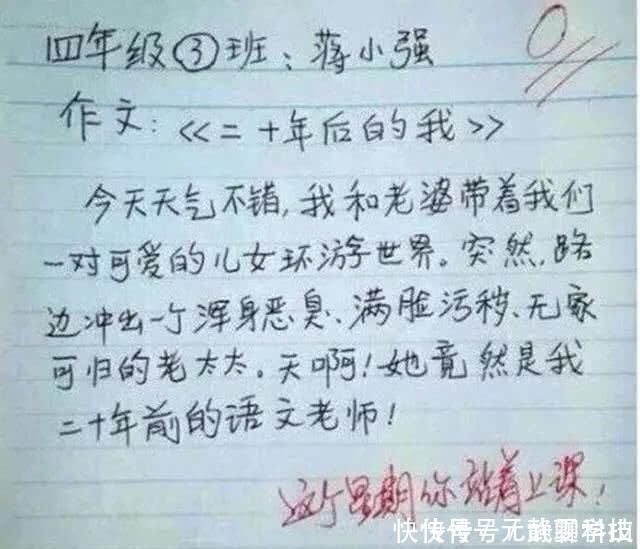 四年级③班：蒋小强
0
作文：<<二十年后的我>>
今天天气不错,我和老婆带着我们
一对可爱的儿女环游世界。突然,路
边冲出一个浑身恶臭、满脸污秽、无家
可归的老太太。天啊！她竟然是我
二十年前的语文老师！
这个星期你站着上课！